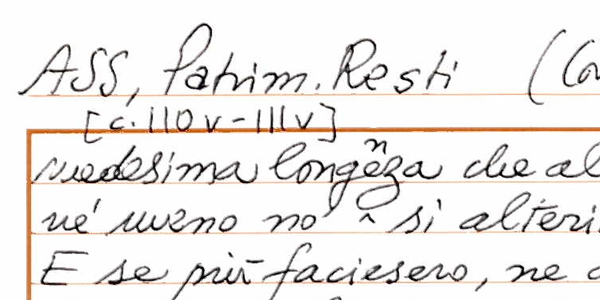 ASS, Patrim. Resti (Con
[c. 110v-111v]
medesima longeza che al
né meno no si alteri
E se più faciesero, ne